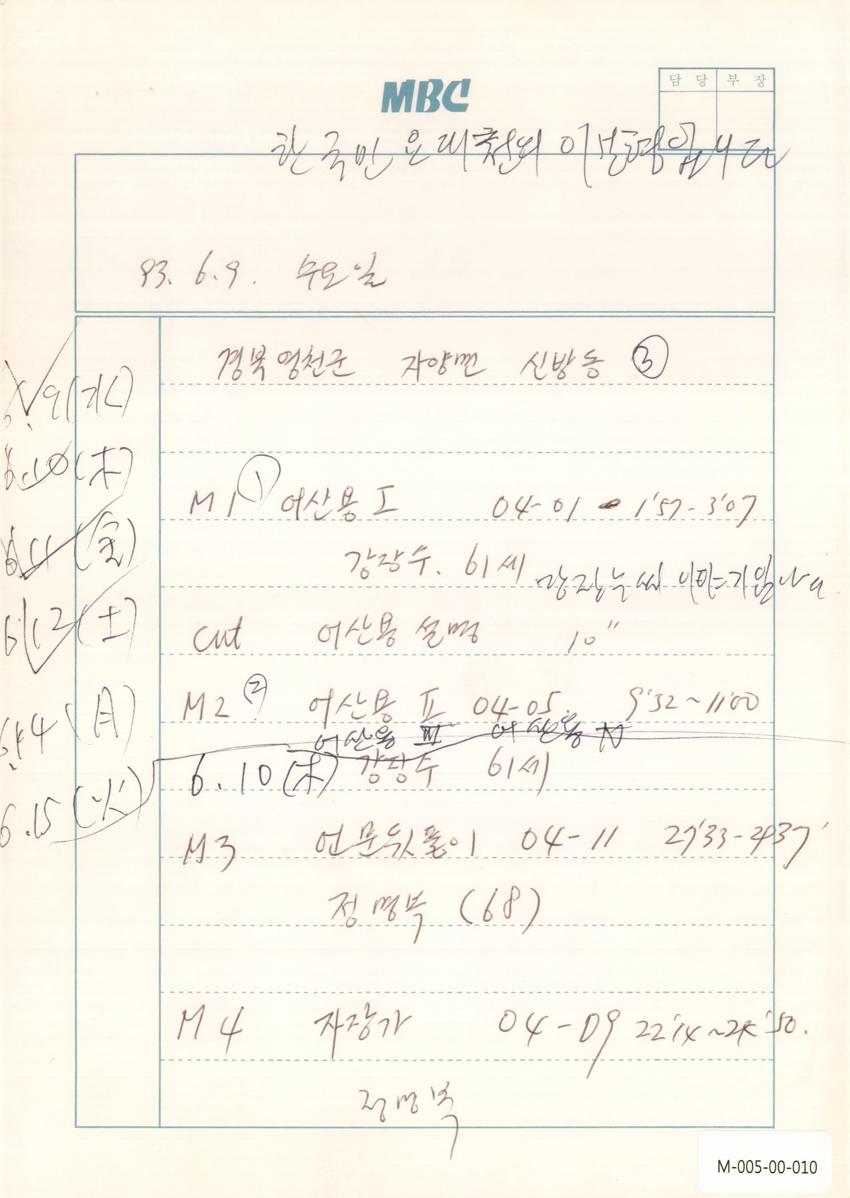 MBC
담 당 부 장
한국민요대전의 입니다
93. 6. 9. 수요일
경북 영천군 자양면 신방동 ③
6.9(水)
6.10(木)
M1 ① 어산용 I 04-01 - 1'57-3'07
6.11(金)
강장수. 61세 강장수씨 이야기입니다
6.12(土)
cut 어산용 설명 10"
M2 ② 어산용 II 04-05. 9'32~11'00
6.14(月)
어산용 III 어산용 IV
6.10(木) 강장수 61세
6.15(火)
M3 언문뒷풀이 04-11 27'33-29'37'
정명북 (68)
M4 자장가 04-09 22'14~24'50.
정명북
M-005-00-010